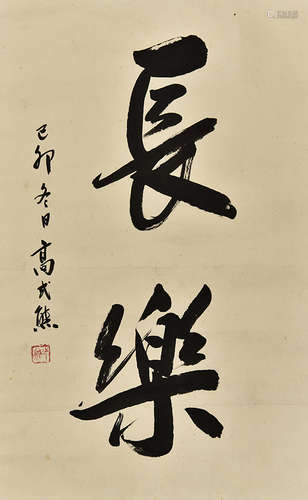 長樂
己卯冬日高式熊